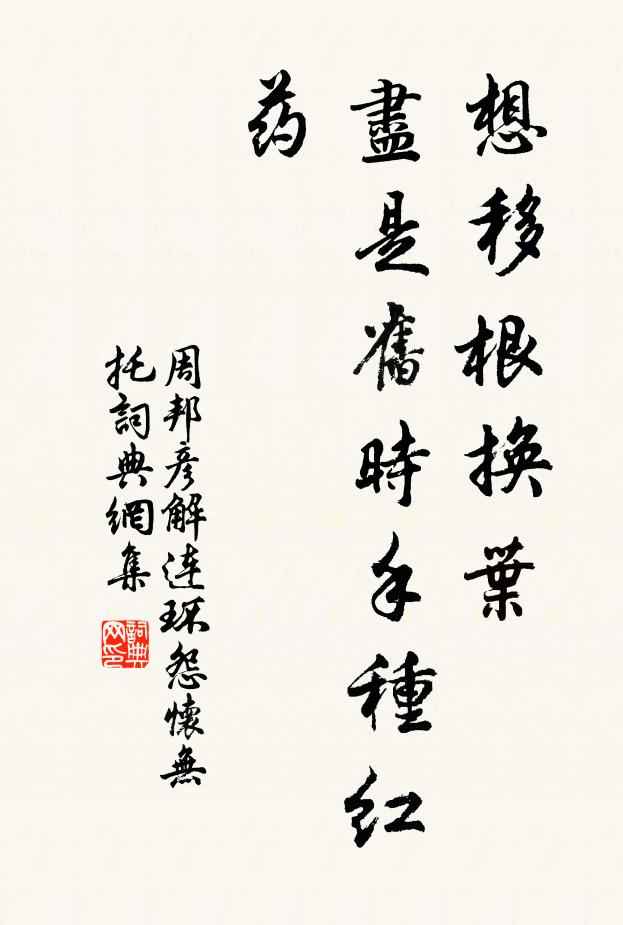 想移根換葉
盡是舊時手種紅
药
周邦彦解连环怨懷無
托詞典網集
詞典网印